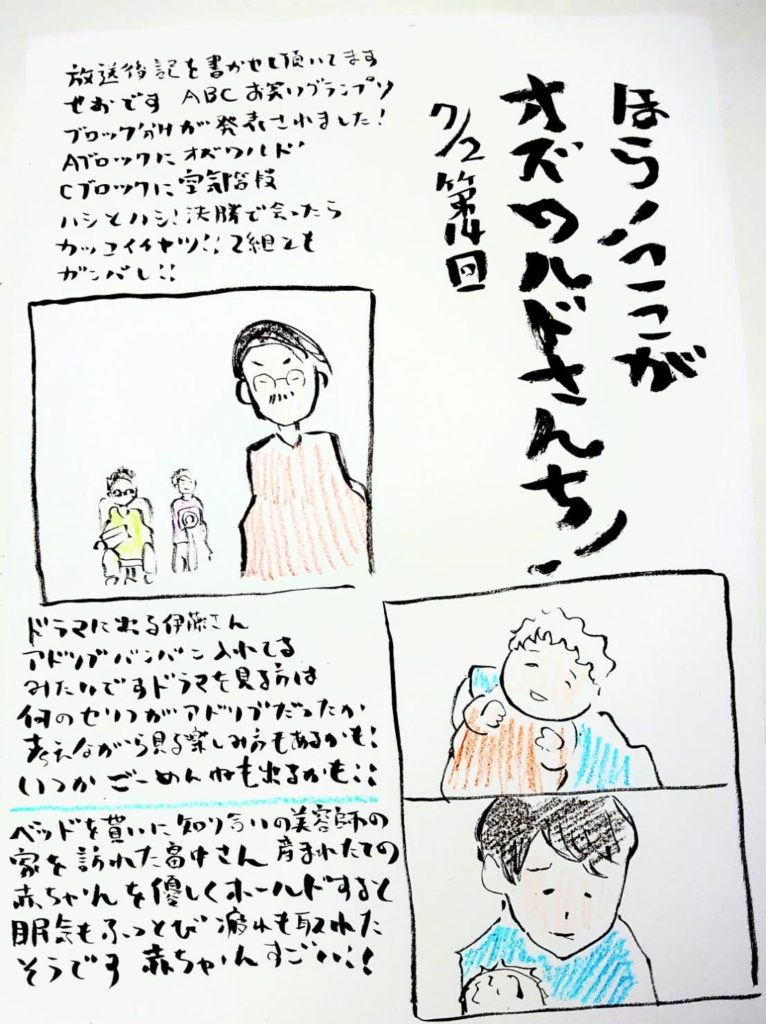 ほら！ここが
オズワルドさんち！
7/2 第14回
放送後記を書かせて頂いてます
せおです ABCお笑いグランプリ
ブロック分けが発表されました！
Aブロックにオズワルド
Cブロックに空気階段
ハシとハシ！決勝で会ったら
カッコイイヤツ！！2組とも
ガンバレ！！
ドラマに出る伊藤さん
アドリブバンバン入れてる
みたいですドラマを見る方は
何のセリフがアドリブだったか
考えながら見る楽しみ方もあるかも！
いつかごーめんねも出るかも！！
ベッドを貰いに知り合いの美容師の
家を訪れた畠中さん 産まれたての
赤ちゃんを優しくホールドすると
眠気もふっとび疲れも取れた
そうです 赤ちゃんすごい！！